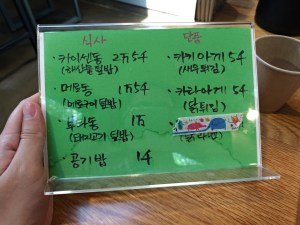 식사
· 카이센동 2만5천
(해산물덮밥)
· 메로동 1만5천
(메로구이 덮밥)
· 부타동 1만
(돼지고기 덮밥)
· 공기밥 1천
단품
· 카키아게 5천
(새우튀김)
· 카라아게 5천
(닭튀김)